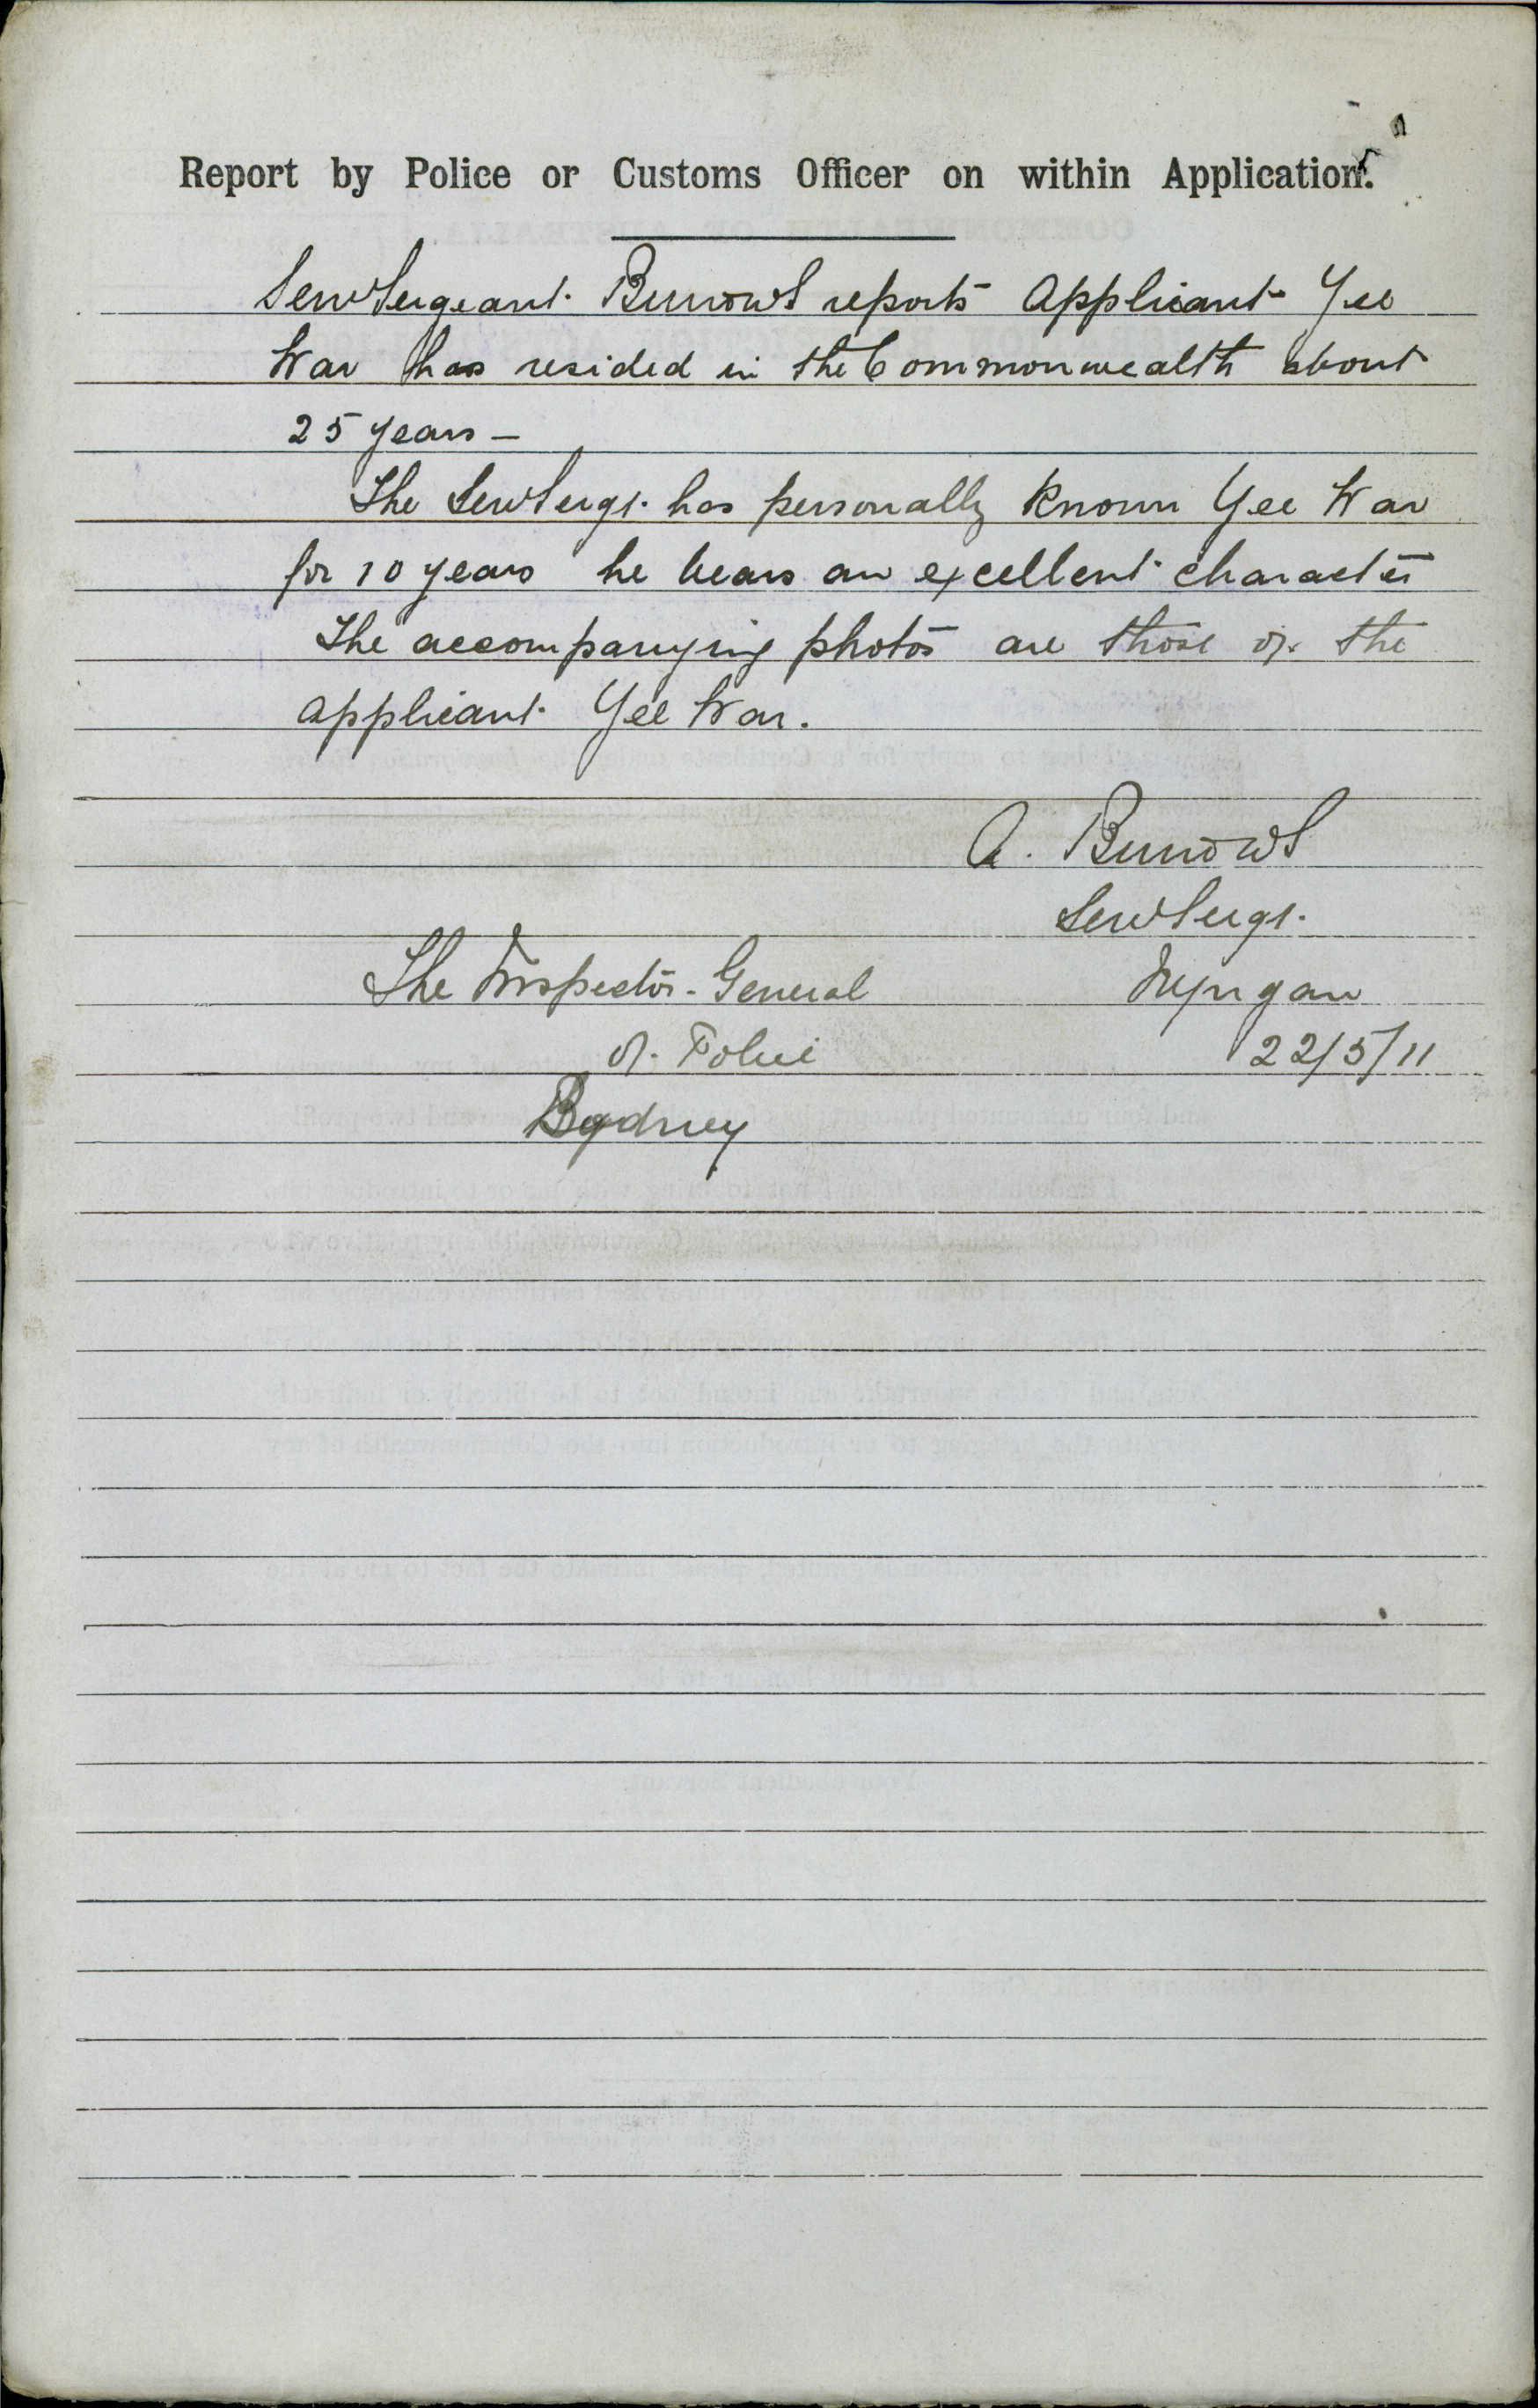 Report by Police or Customs Officer on within Application.
Senr Sergeant Burrows reports Applicant Yee
War has resided in the Commonwealth about
25 years —
The Senr Sergt. has personally known Yee War
for 10 years he bears an excellent character
The accompanying photos are those of the
applicant Yee War.
A. Burrows
Senr Sergt.
The Inspector-General
Nyngan
of Police
22/5/11
Sydney